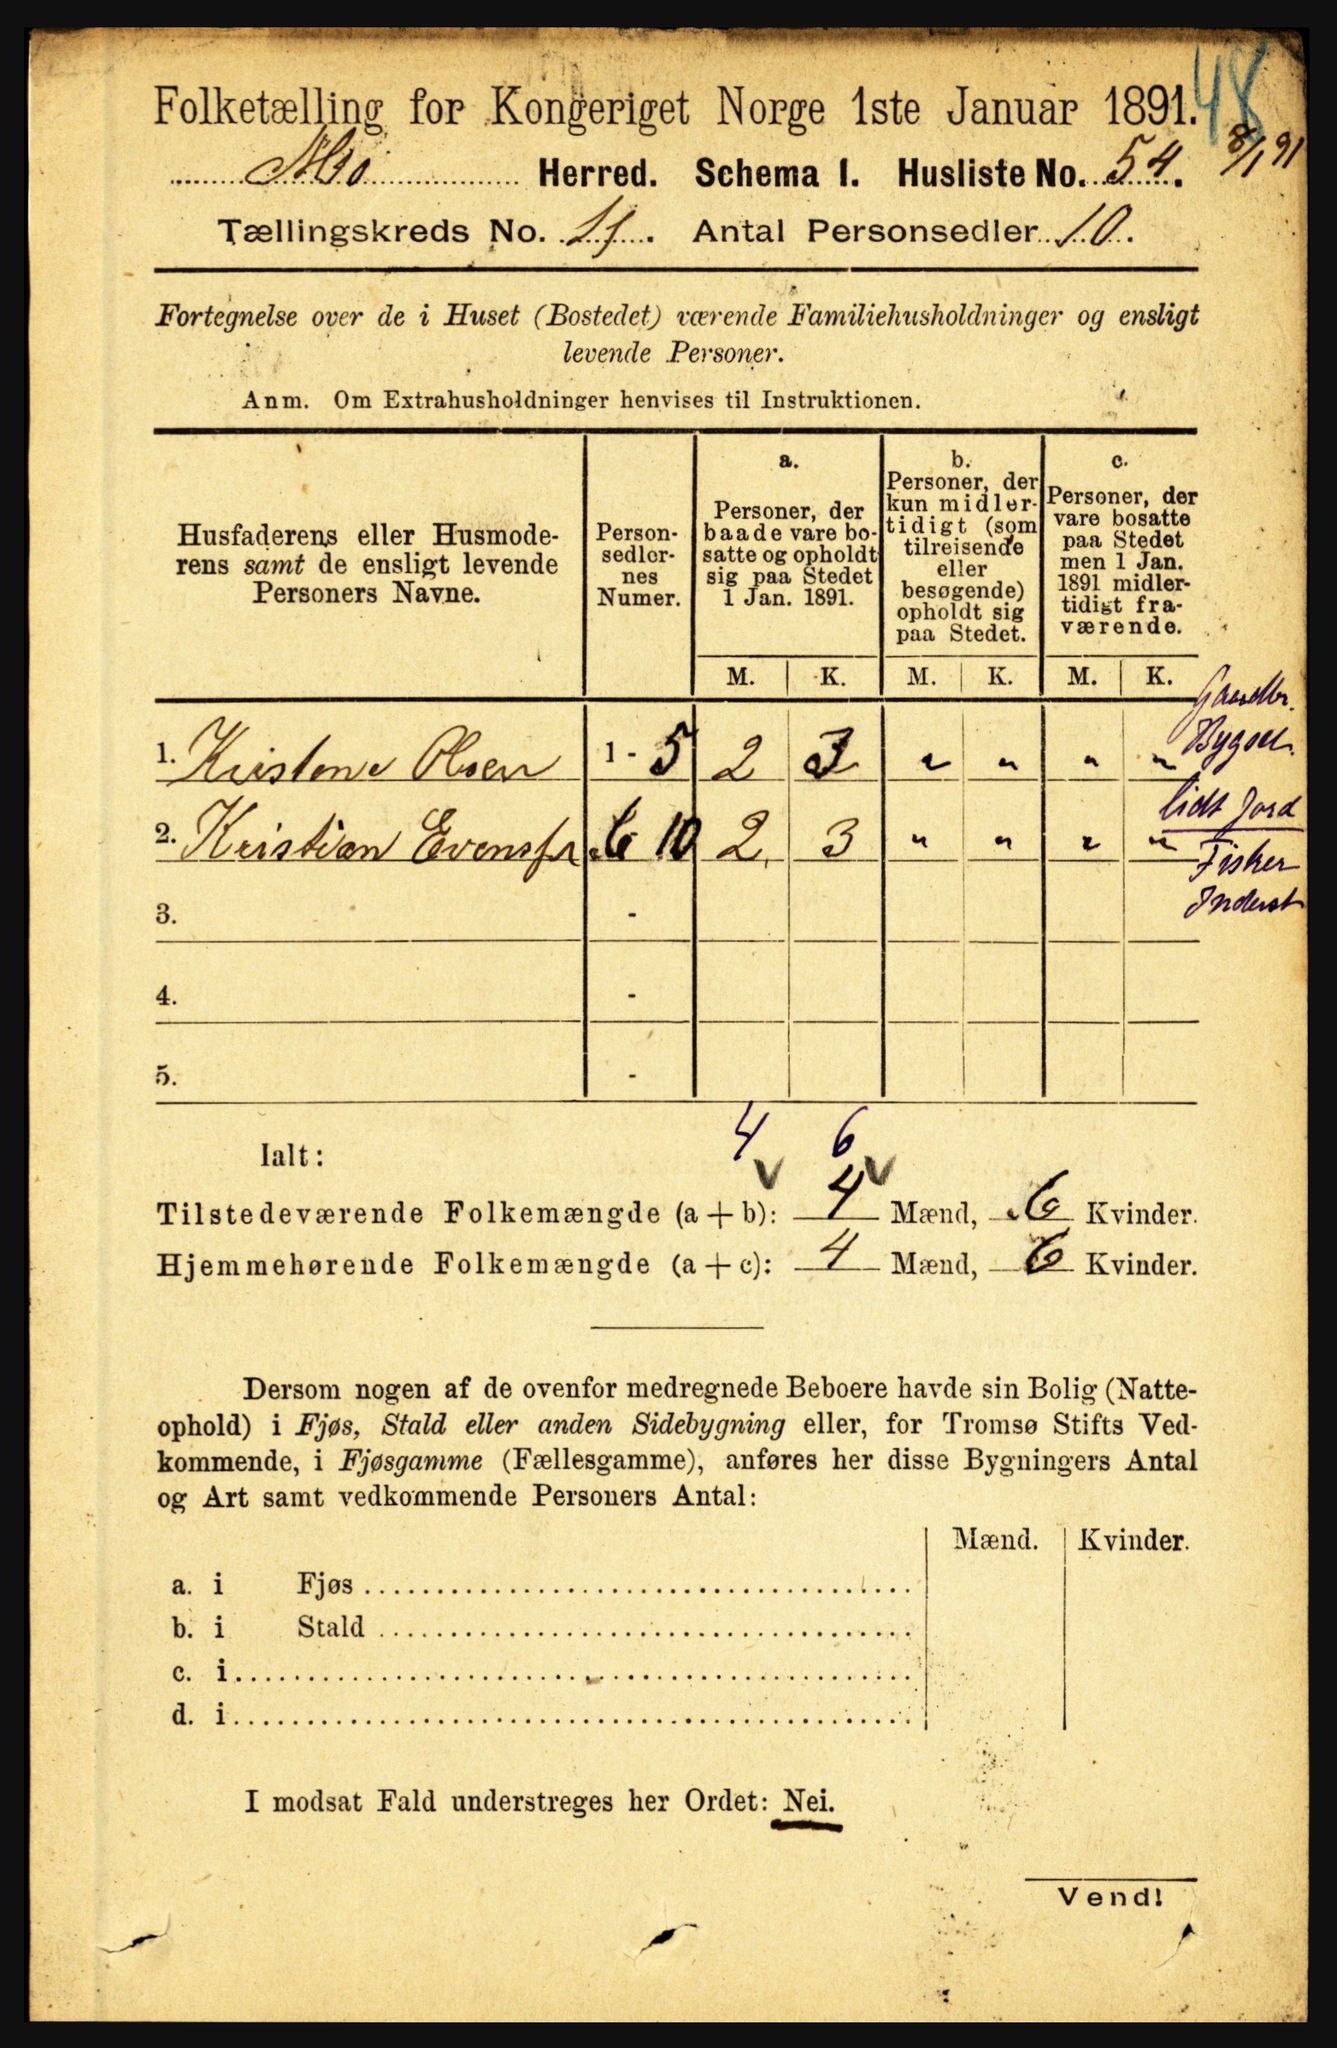 48
Folketælling for Kongeriget Norge 1ste Januar 1891.
8/1 91
Herred. Schema I. Husliste No. 54.
Tællingskreds No. 11. Antal Personsedler 10.
Fortegnelse over de i Huset (Bostedet) værende Familiehusholdninger og ensligt
levende Personer.
Anm. Om Extrahusholdninger henvises til Instruktionen.
Husfaderens eller Husmode-
rens samt de ensligt levende
Personers Navne.
Person-
sedler-
nes
Numer.
a.
Personer, der
baade vare bo-
satte og opholdt
sig paa Stedet
1 Jan. 1891.
b.
Personer, der
kun midler-
tidigt (som
tilreisende
eller
besøgende)
opholdt sig
paa Stedet.
c.
Personer, der
vare bosatte
paa Stedet
men 1 Jan.
1891 midler-
tidigt fra-
værende.
M. K. M. K. M. K.
Gaardbr.
Bygsel.
1. Kristen Olsen 1 - 5 2 3 " " " "
lidt Jord
2. Kristian Evensen 6 10 2 3 " " " "
Fisker
Inderst
3. -
4. -
5. -
4 6
Ialt:
Tilstedeværende Folkemængde (a + b): 4 Mænd, 6 Kvinder.
Hjemmehørende Folkemængde (a + c): 4 Mænd, 6 Kvinder.
Dersom nogen af de ovenfor medregnede Beboere havde sin Bolig (Natte-
ophold) i Fjøs, Stald eller anden Sidebygning eller, for Tromsø Stifts Ved-
kommende, i Fjøsgamme (Fællesgamme), anføres her disse Bygningers Antal
og Art samt vedkommende Personers Antal:
Mænd. Kvinder.
a. i Fjøs
b. i Stald
c. i
d. i
I modsat Fald understreges her Ordet: Nei.
Vend!